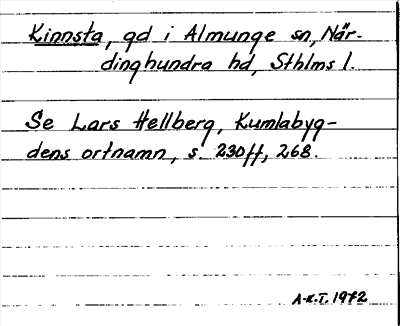 Kinnsta, gd i Almunge sn, När-
dinghundra hd, Sthlms l.
Se Lars Hellberg, Kumlabyg-
dens ortnamn, s. 230ff, 268.
A-K.T. 1972